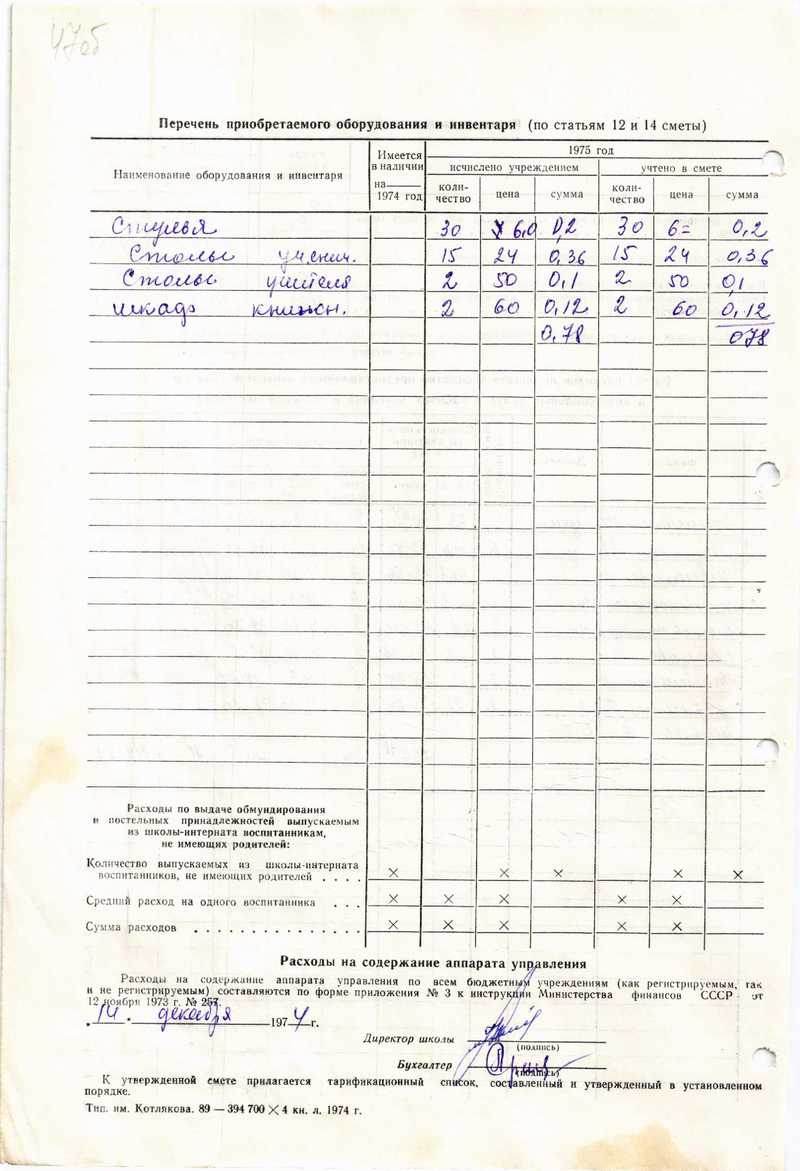 47об
Перечень приобретаемого оборудования и инвентаря (по статьям 12 и 14 сметы)
Наименование оборудования и инвентаря
Имеется в наличии на 1974 год
1975 год
исчислено учреждением
учтено в смете
коли-чество цена сумма коли-чество цена сумма
Стулья 30 6,0 0,2 30 6= 0,2
Столы ученич. 15 24 0,36 15 24 0,36
Столы учителя 2 50 0,1 2 50 0,1
шкаф книжн. 2 60 0,12 2 60 0,12
0,78 078
Расходы по выдаче обмундирования
и постельных принадлежностей выпускаемым
из школы-интерната воспитанникам,
не имеющих родителей:
Количество выпускаемых из школы-интерната
воспитанников, не имеющих родителей . . . . × × × × ×
Средний расход на одного воспитанника . . . × × × × ×
Сумма расходов . . . . . . . . . . . . . . . × × × × ×
Расходы на содержание аппарата управления
Расходы на содержание аппарата управления по всем бюджетным учреждениям (как регистрируемым, так
и не регистрируемым) составляются по форме приложения № 3 к инструкции Министерства финансов СССР от
12 ноября 1973 г. № 257.
„14" декабря 1974 г.
Директор школы
(подпись)
Бухгалтер
(подпись)
К утвержденной смете прилагается тарификационный список, составленный и утвержденный в установленном
порядке.
Тип. им. Котлякова. 89 — 394 700 × 4 кн. л. 1974 г.